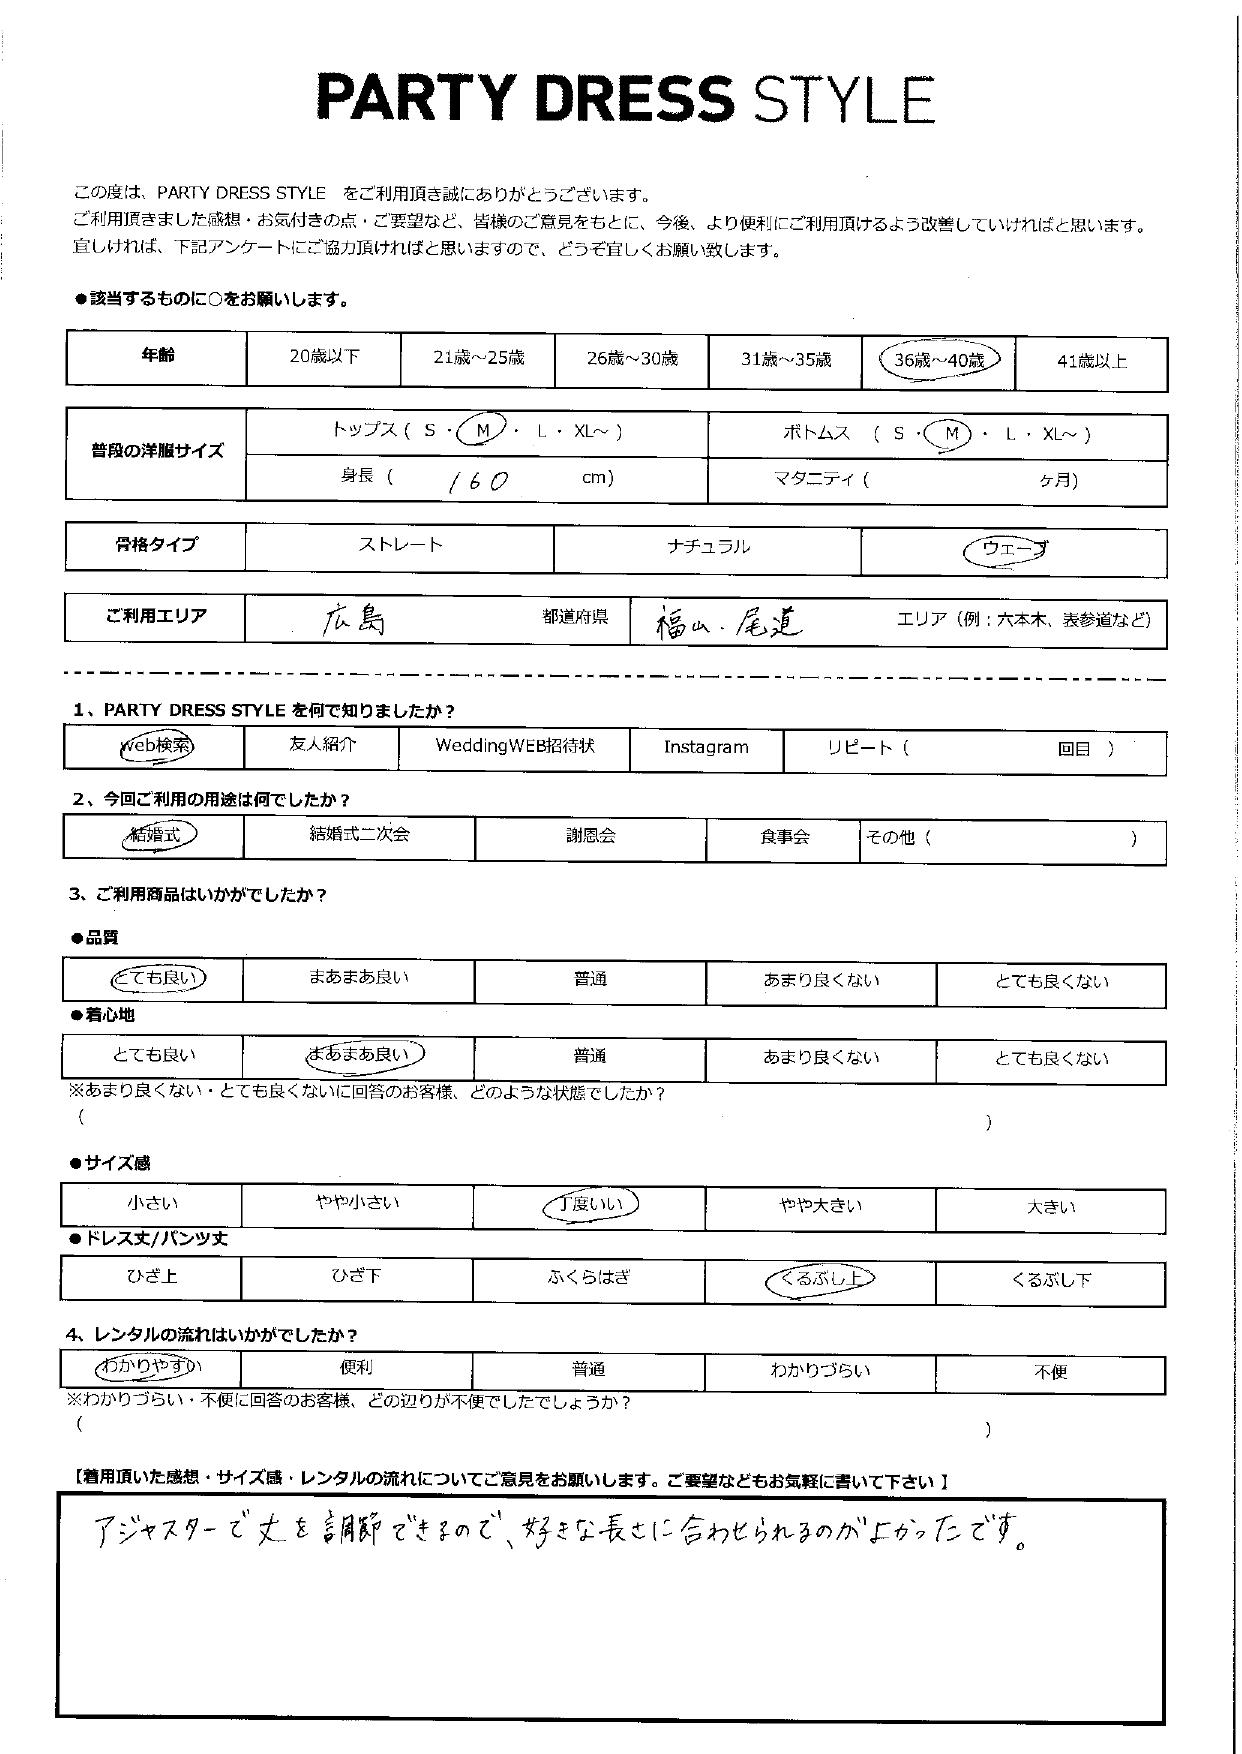 PARTY DRESS STYLE
この度は、PARTY DRESS STYLE をご利用頂き誠にありがとうございます。
ご利用頂きました感想・お気付きの点・ご要望など、皆様のご意見をもとに、今後、より便利にご利用頂けるよう改善していければと思います。
宜しければ、下記アンケートにご協力頂ければと思いますので、どうぞ宜しくお願い致します。
●該当するものに○をお願いします。
年齢 20歳以下 21歳～25歳 26歳～30歳 31歳～35歳 36歳～40歳 41歳以上
普段の洋服サイズ
トップス ( S ・ M ・ L ・ XL～ ) ボトムス ( S ・ M ・ L ・ XL～ )
身長 ( 160 cm) マタニティ ( ヶ月)
骨格タイプ ストレート ナチュラル ウェーブ
ご利用エリア 広島 都道府県 福山・尾道 エリア（例：六本木、表参道など）
1、PARTY DRESS STYLE を何で知りましたか？
Web検索 友人紹介 WeddingWEB招待状 Instagram リピート ( 回目 )
2、今回ご利用の用途は何でしたか？
結婚式 結婚式二次会 謝恩会 食事会 その他 ( )
3、ご利用商品はいかがでしたか？
●品質
とても良い まあまあ良い 普通 あまり良くない とても良くない
●着心地
とても良い まあまあ良い 普通 あまり良くない とても良くない
※あまり良くない・とても良くないに回答のお客様、どのような状態でしたか？
( )
●サイズ感
小さい やや小さい 丁度いい やや大きい 大きい
●ドレス丈/パンツ丈
ひざ上 ひざ下 ふくらはぎ くるぶし上 くるぶし下
4、レンタルの流れはいかがでしたか？
わかりやすい 便利 普通 わかりづらい 不便
※わかりづらい・不便に回答のお客様、どの辺りが不便でしたでしょうか？
( )
【着用頂いた感想・サイズ感・レンタルの流れについてご意見をお願いします。ご要望などもお気軽に書いて下さい】
アジャスターで丈を調節できるので、好きな長さに合わせられるのがよかったです。